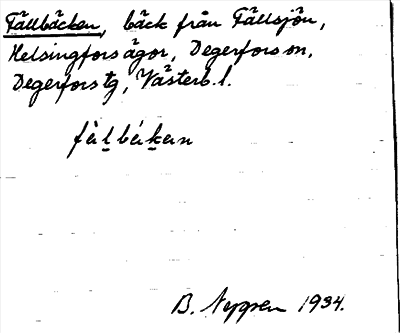 Fällbäcken, bäck från Fällsjön,
Helsingfors ägor, Degerfors sn,
Degerfors tg, Västerb. l.
fàl̠béḵen
B. 1934.